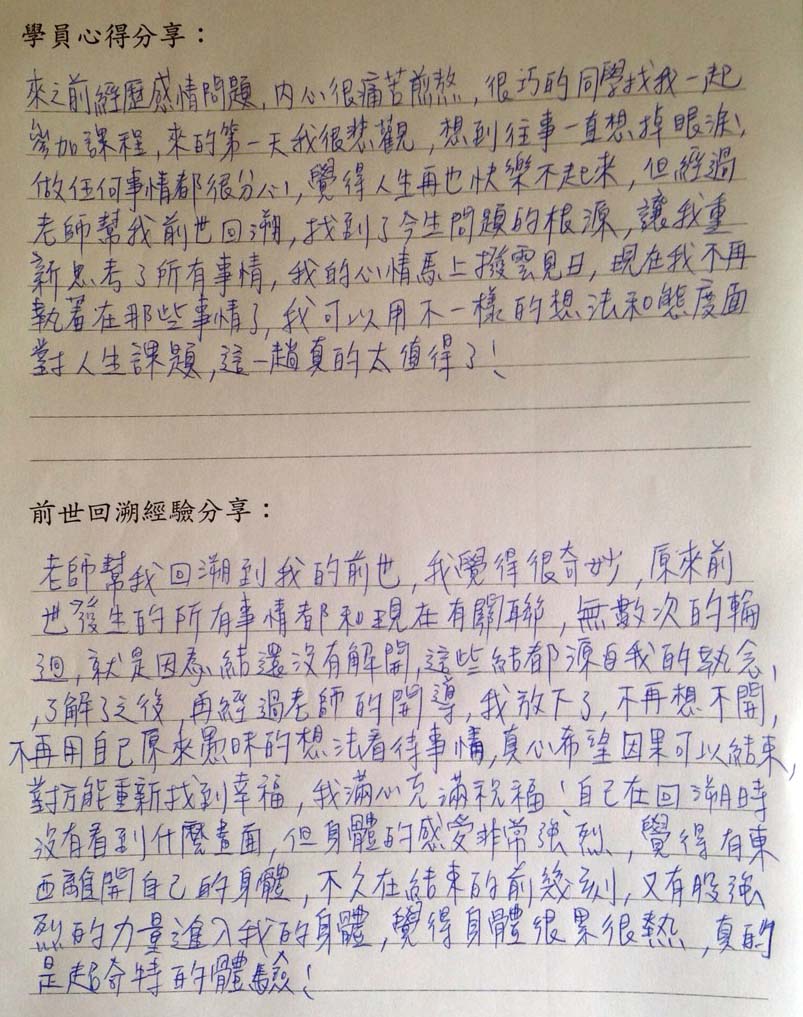 學員心得分享：
來之前經歷感情問題，內心很痛苦煎熬，很巧的同學找我一起
參加課程，來的第一天我很悲觀，想到往事一直想掉眼淚，
做任何事情都很分心，覺得人生再也快樂不起來，但經過
老師幫我前世回溯，找到了今生問題的根源，讓我重
新思考了所有事情，我的心情馬上撥雲見日，現在我不再
執著在那些事情了，我可以用不一樣的想法和態度面
對人生課題，這一趟真的太值得了！
前世回溯經驗分享：
老師幫我回溯到我的前世，我覺得很奇妙，原來前
世發生的所有事情都和現在有關聯，無數次的輪
迴，就是因為結還沒有解開，這些結都源自我的執念，
，了解了之後，再經過老師的開導，我放下了，不再想不開，
不再用自己原來愚昧的想法看待事情，真心希望因果可以結束，
對方能重新找到幸福，我滿心充滿祝福！自己在回溯時
沒有看到什麼畫面，但身體的感受非常強烈，覺得有東
西離開自己的身體，不久在結束的前幾刻，又有股強
烈的力量進入我的身體，覺得身體很累很熱，真的
是超奇特的體驗！